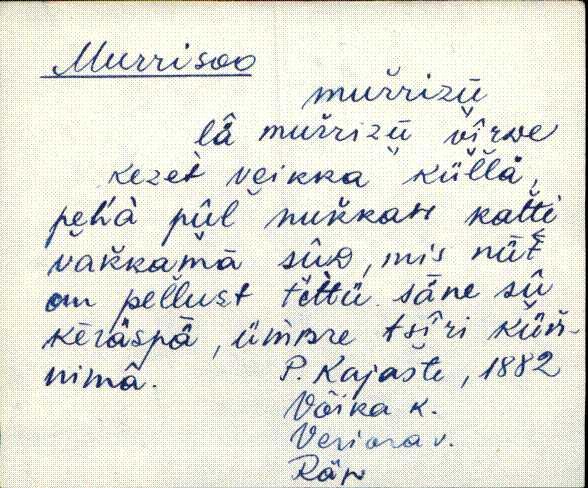 Murrisoo
muřrizū
lâ muřrizū v̌îrwe
kezet veikka küllä,
peňà pûl nukkan kať̌ti
vǎkkamā sûo, mis nǖt
om pellust tet̆tü. sāne sû
kēräspā, üm̀bre tsîri küň-
nimâ. P. Kajaste, 1882
Võika k.
Veriora v.
Räp